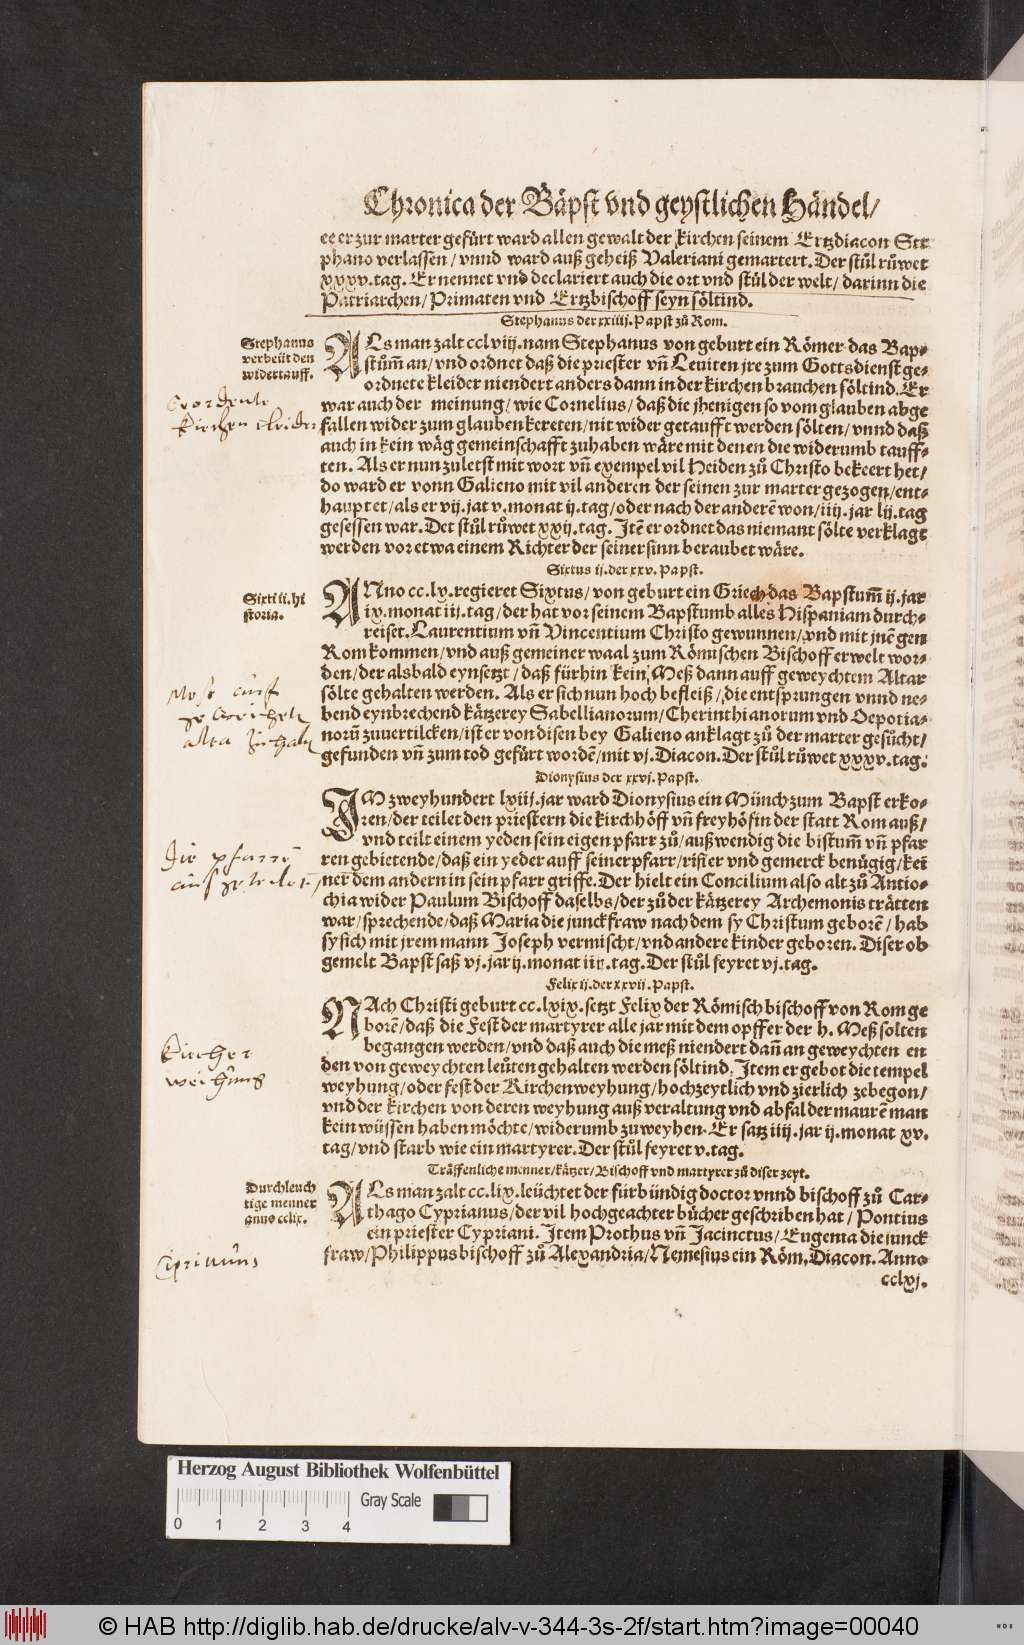 Chronica der Bäpst vnd geystlichen Händel/
ee er zur marter gefürt ward allen gewalt der kirchen seinem Ertzdiacon Ste
phano verlassen / vnnd ward auß geheiß Valeriani gemartert. Der stůl růwet
xxxv.tag. Er nennet vnd declariert auch die ort vnd stůl der welt/ darinn die
Patriarchen/ Primaten vnd Ertzbischoff seyn söltind.
Stephanus der xxiiij. Papst zů Rom.
Stephanus
verbeüt den
widertauff.
ALs man zalt cclviij. nam Stephanus von geburt ein Römer das Bap-
stům̃ an/ vnd ordnet daß die priester vñ Leuiten jre zum Gottsdienst ge-
ordnete kleider niendert anders dann in der kirchen brauchen söltind. Er
war auch der meinung/ wie Cornelius/ daß die jhenigen so vom glauben abge
fallen wider zum glauben kereten/ nit wider getaufft werden sölten/ vnnd daß
auch in kein wäg gemeinschafft zuhaben wäre mit denen die widerumb tauff-
ten. Als er nun zuletst mit wort vñ exempel vil Heiden zů Christo bekeert het/
do ward er vonn Galieno mit vil anderen der seinen zur marter gezogen/ ent-
hauptet/ als er vij. jar v. monat ij. tag/ oder nach der anderẽ won/ iiij. jar lij. tag
gesessen war. Det stůl růwet xxij. tag. Jtẽ er ordnet das niemant sölte verklagt
werden vor etwa einem Richter der seiner sinn beraubet wäre.
Sixtus ij. der xxv. Papst.
Sixti ii. hi
storia.
ANno cc.lv. regieret Sixtus/ von geburt ein Griech das Bapstum̃ ij. jar
ix. monat iij. tag/ der hat vor seinem Bapstumb alles Hispaniam durch-
reiset. Laurentium vñ Vincentium Christo gewunnen/ vnd mit jnẽ gen
Rom kommen/ vnd auß gemeiner waal zum Römischen Bischoff erwelt wor-
den/ der alsbald eynsetzt / daß fürhin kein Meß dann auff geweychtem Altar
sölte gehalten werden. Als er sich nun hoch befleiß/ die entsprungen vnnd ne-
bend eynbrechend kätzerey Sabellianorum/ Cherinthianorum vnd Oepotia-
norũ zuuertilcken/ ist er von disen bey Galieno anklagt zů der marter gesůcht/
gefunden vñ zum tod gefürt wordẽ/ mit vj. Diacon. Der stůl růwet xxxv. tag.
Dionysius der xxvj. Papst.
JM zweyhundert lxiij. jar ward Dionysius ein Münch zum Bapst erko-
ren/ der teilet den priestern die kirchhöff vñ freyhöf in der statt Rom auß/
vnd teilt einem yeden sein eigen pfarr zů/ außwendig die bistum̃ vñ pfar
ren gebietende/ daß ein yeder auff seiner pfarr/ rifier vnd gemerck benügig/ kei
ner dem andern in sein pfarr griffe. Der hielt ein Concilium also alt zů Antio-
chia wider Paulum Bischoff daselbs/ der zů der kätzerey Archemonis trätten
war/ sprechende/ daß Maria die junckfraw nach dem sy Christum geborẽ/ hab
sy sich mit jrem mann Joseph vermischt/ vnd andere kinder geboren. Diser ob
gemelt Bapst saß vj. jar ij. monat iiij. tag. Der stůl feyret vj. tag.
Felix ij. der xxvij. Papst.
NAch Christi geburt cc.lxix. setzt Felix der Römisch bischoff von Rom ge
borẽ/ daß die Fest der martyrer alle jar mit dem opffer der h. Meß solten
begangen werden/ vnd daß auch die meß niendert dañ an geweychten en
den von geweychten leüten gehalten werden söltind. Jtem er gebot die tempel
weyhung/ oder fest der Kirchenweyhung/ hochzeytlich vnd zierlich zebegon/
vnd der kirchen von deren weyhung auß veraltung vnd abfal der maurẽ man
kein wüssen haben möchte/ widerumb zuweyhen. Er satz iiij. jar ij. monat xv.
tag/ vnd starb wie ein martyrer. Der stůl feyret v. tag.
Träffenliche menner/ kätzer/ Bischoff vnd martyrer zů diser zeyt.
Durchleuch
tige menner
anno cclix.
ALs man zalt cc.lix. leüchtet der fürbündig doctor vnnd bischoff zů Car-
thago Cyprianus/ der vil hochgeachter bücher geschriben hat / Pontius
ein priester Cypriani. Jtem Prothus vñ Jacinctus/ Eugenia die junck
fraw/ Philippus bischoff zů Alexandria/ Nemesius ein Röm. Diacon. Anno
cclxj.
kirchen kleider
Meß auf
Die pfarrẽ
Kircher
weihung
Ciprianus
Herzog August Bibliothek Wolfenbüttel
Gray Scale
0 1 2 3 4
© HAB http://diglib.hab.de/drucke/alv-v-344-3s-2f/start.htm?image=00040